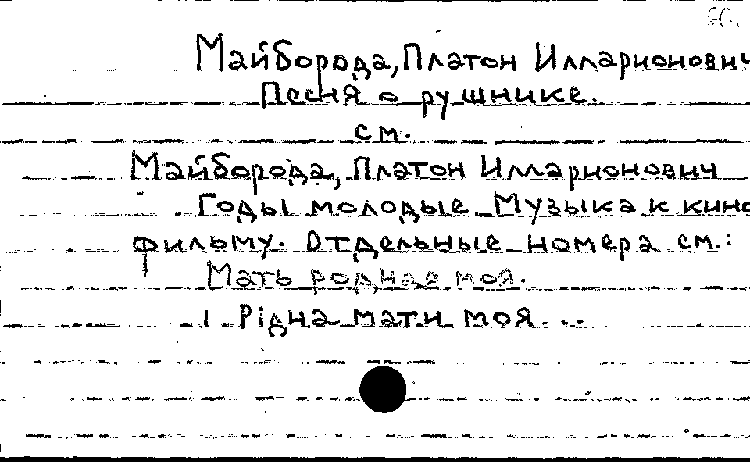 Майборода, Платон Илларионович
Песня о рушнике.
см.
Майборода, Платон Илларионович
Годы молодые. Музыка к кино
фильму. Отдельные номера см.:
Мать родная моя.
1 Рідна мати моя...